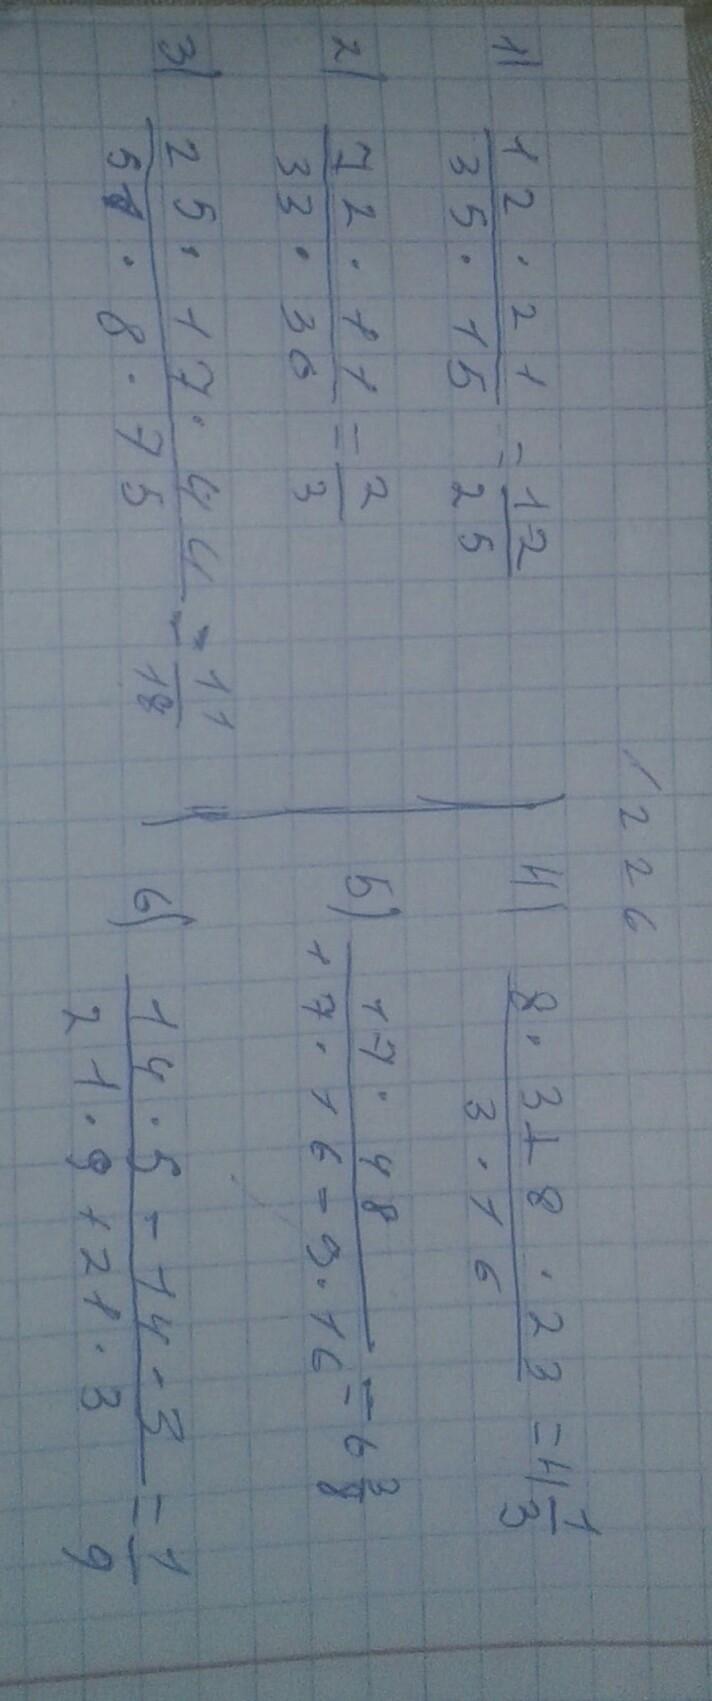 /226
1) 12 · 21 / 35 · 15 = 12/25
2) 72 · 11 / 33 · 36 = 2/3
3) 25 · 17 · 44 / 51 · 8 · 75 = 11/18
4) 8 · 3 + 8 · 23 / 3 · 16 = 4 1/3
5) 17 · 48 / 17 · 16 - 9 · 16 = 6 3/8
6) 14 · 5 - 14 · 3 / 21 · 9 + 21 · 3 = 1/9